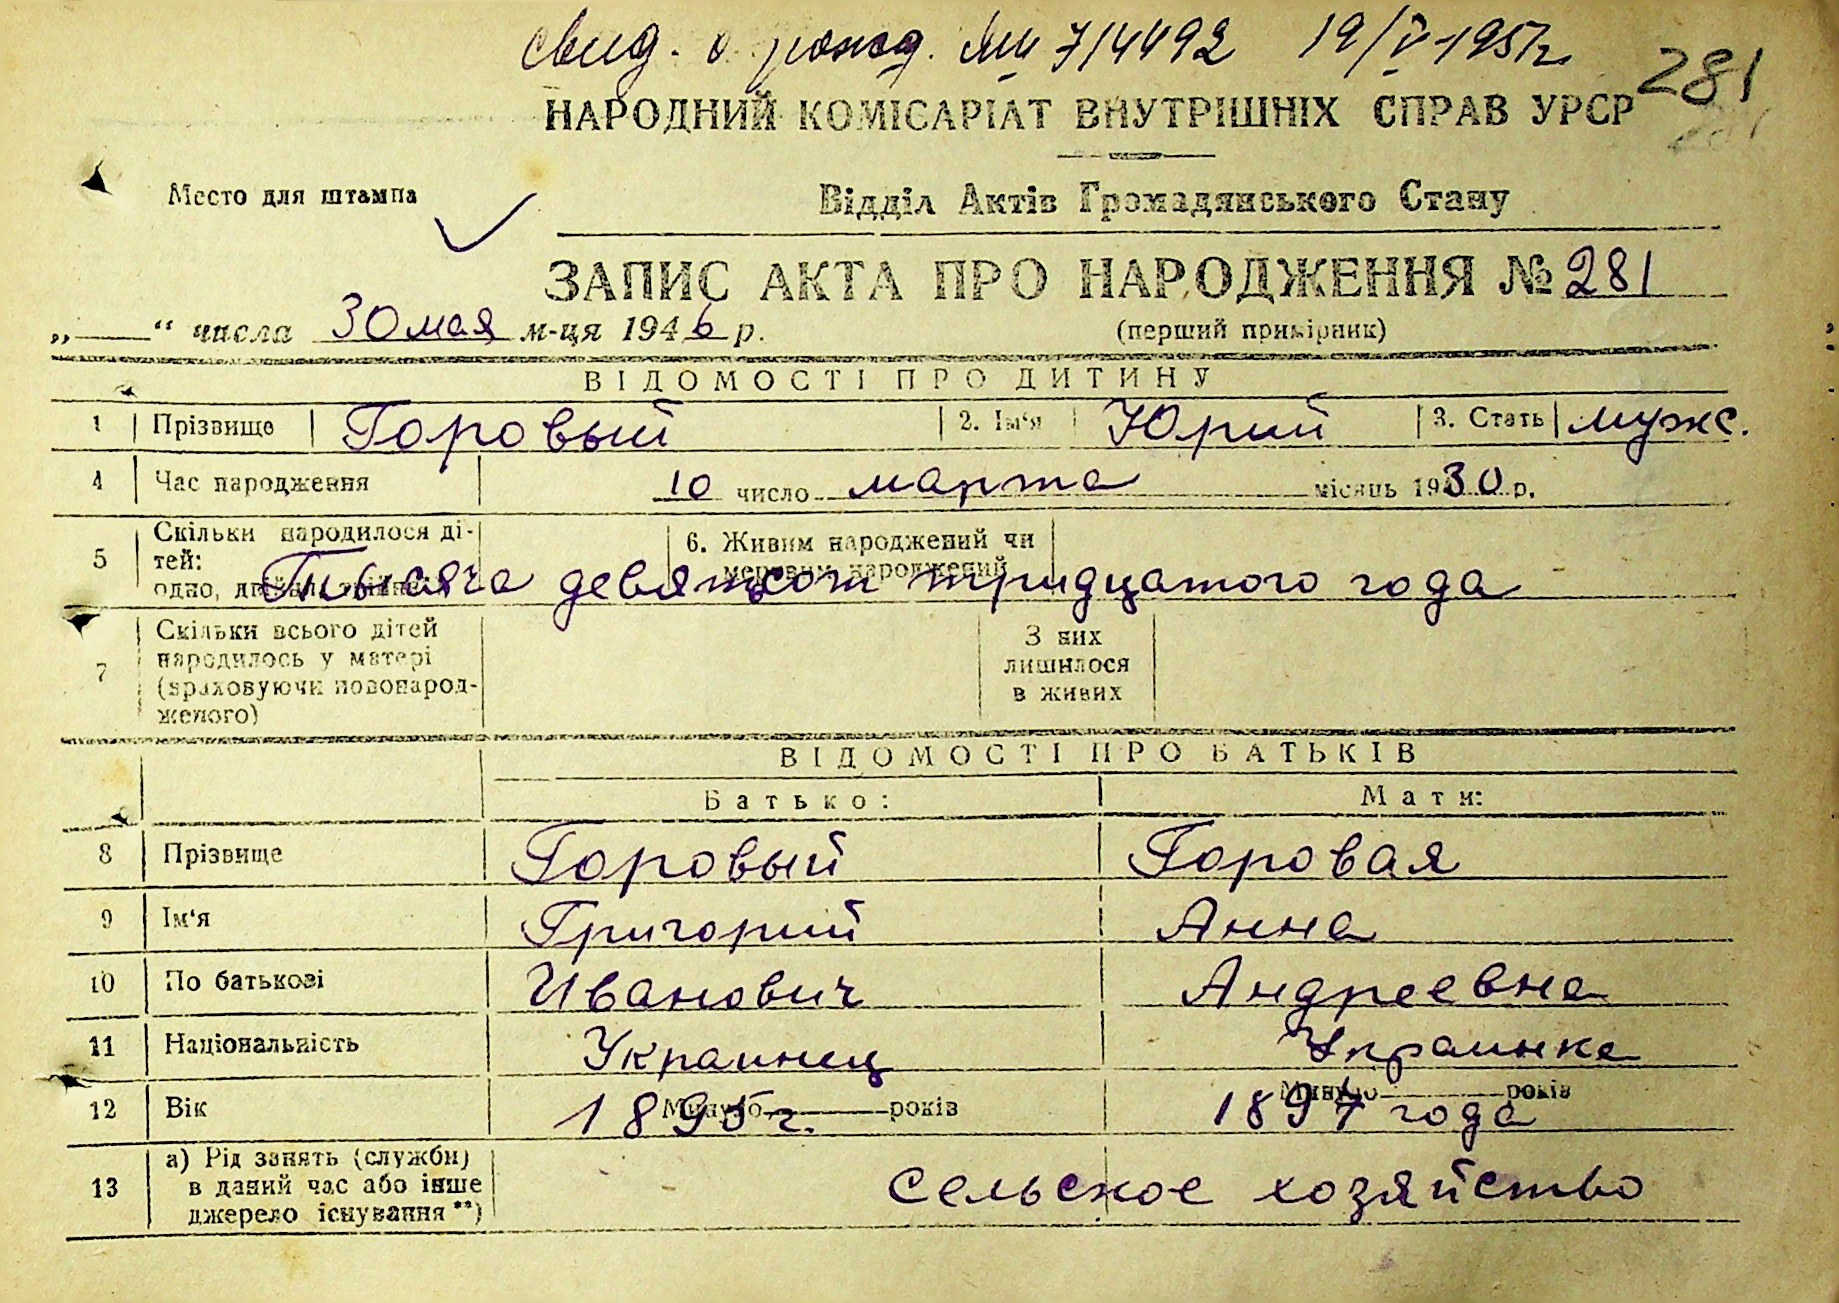 свид. о рожд. 714492 19/V-1957г.
281
НАРОДНИЙ КОМІСАРІАТ ВНУТРІШНІХ СПРАВ УРСР
Место для штампа
Відділ Актів Громадянського Стану
ЗАПИС АКТА ПРО НАРОДЖЕННЯ № 281
„ “ числа 30 мая м-ця 1946 р. (перший примірник)
ВІДОМОСТІ ПРО ДИТИНУ
1 Прізвище Горовый 2. Ім'я Юрий 3. Стать мужс.
4 Час народження 10 число марта місяць 1930 р.
5 Скільки народилося ді-
тей:
одно,
6. Живим народжений чи
мертвим народжений
Тысяча девятьсот тридцатого года
7 Скільки всього дітей
народилось у матері
(враховуючи новонарод-
женого)
З них
лишилося
в живих
ВІДОМОСТІ ПРО БАТЬКІВ
Батько: Мати:
8 Прізвище Горовый Горовая
9 Ім'я Григорий Анна
10 По батькові Иванович Андреевна
11 Національність Украинец Украинка
12 Вік Минуло років 1895 г. Минуло років 1897 года
13 а) Рід занять (служби)
в даний час або інше
джерело існування **)
сельское хозяйство